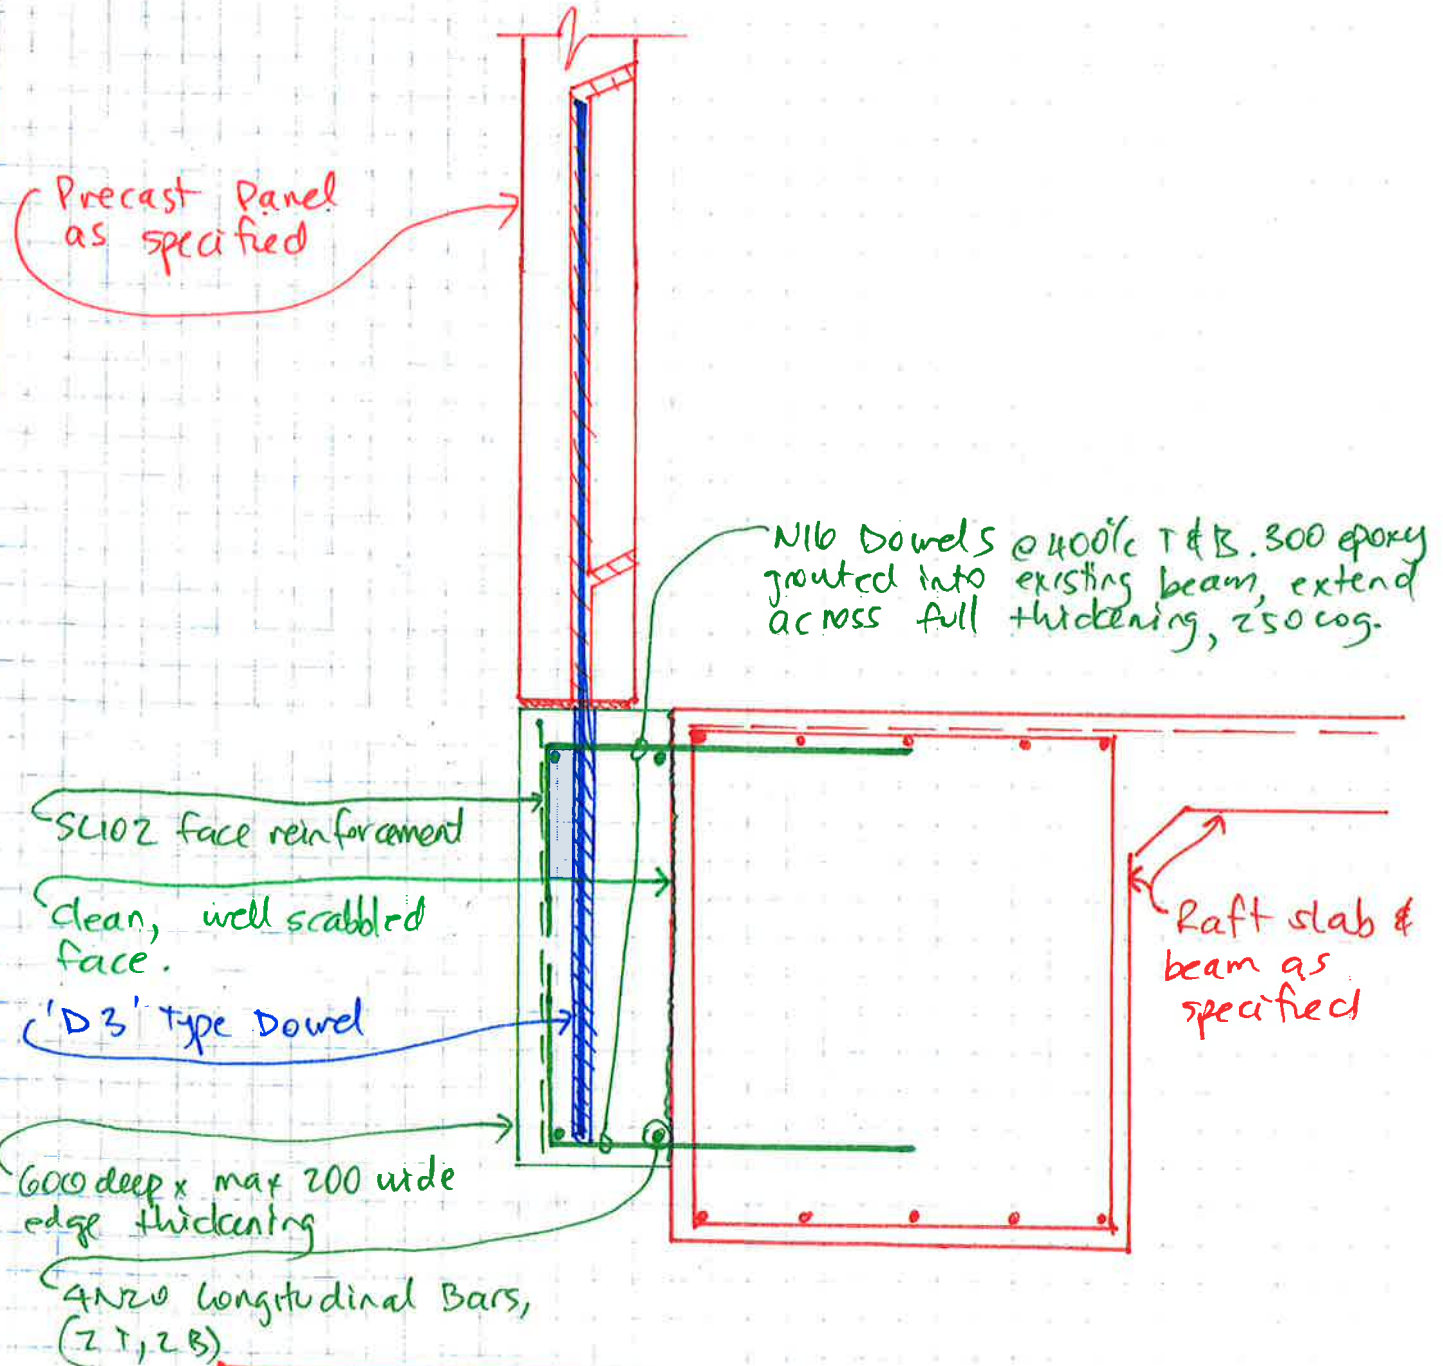 Precast Panel
as specified
N16 Dowels @400%c T & B. 300 epoxy
grouted into existing beam, extend
across full thickening, 250 cog.
SL102 face reinforcement
clean, well scabbled
face.
'D3' Type Dowel
600 deep x max 200 wide
edge thickening
4N20 Longitudinal Bars,
(2T, 2B)
Raft slab &
beam as
specified